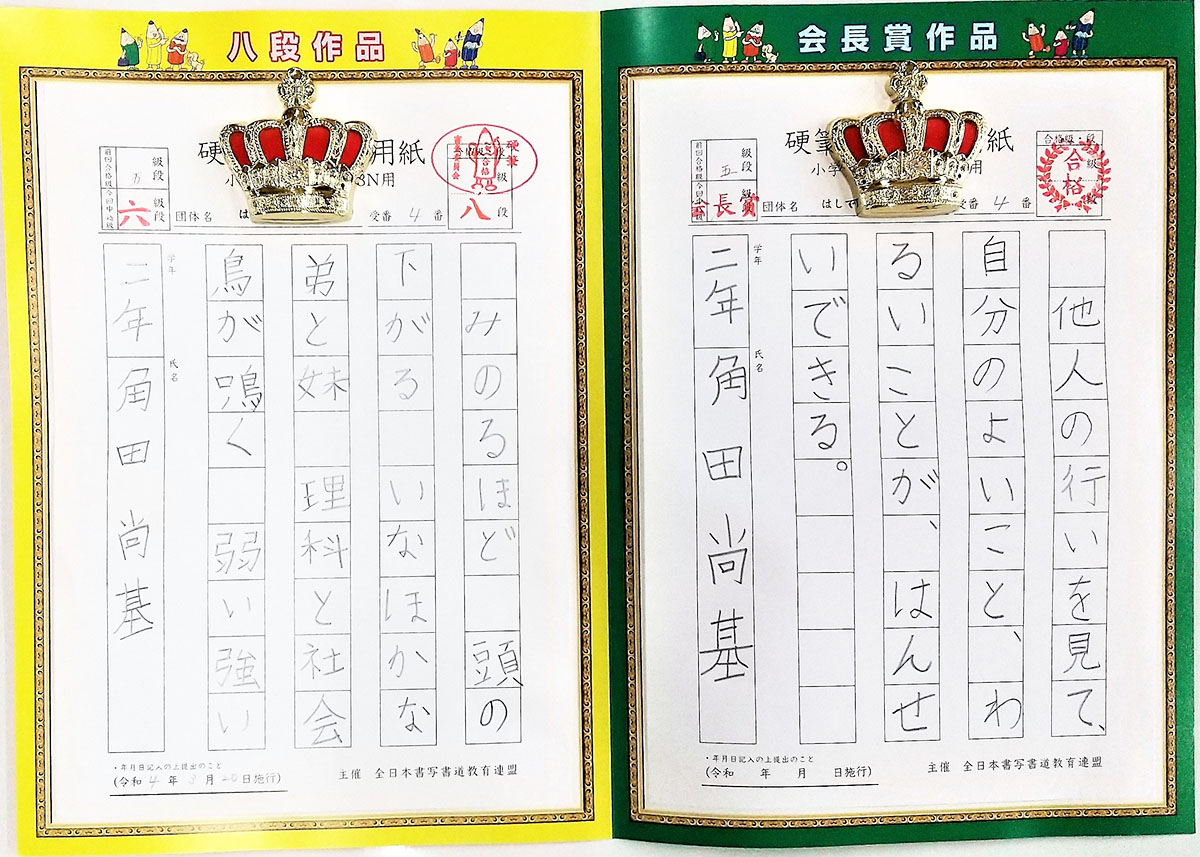 八段作品
硬
用紙
小
3N用
硬筆
合格
前回合格級
今回申込級
級
段
六
級
段
団体名
は
受番 4 番
級
八 段
みのるほど 頭の
下がる いなほかな
弟と妹 理科と社会
鳥が鳴く 弱い強い
学年
二年
氏名
角田尚基
・年月日記入の上提出のこと
(令和 4 年 3 月 20 日施行)
主催 全日本書写書道教育連盟
会長賞作品
硬筆
紙
小学
用
合格級・段
合格
前回合格級
今回申込級
五
級
段
長賞
団体名
はし
受番 4 番
他人の行いを見て、
自分のよいこと、わ
るいことが、はんせ
いできる。
学年
二年
氏名
角田尚基
・年月日記入の上提出のこと
(令和 年 月 日施行)
主催 全日本書写書道教育連盟